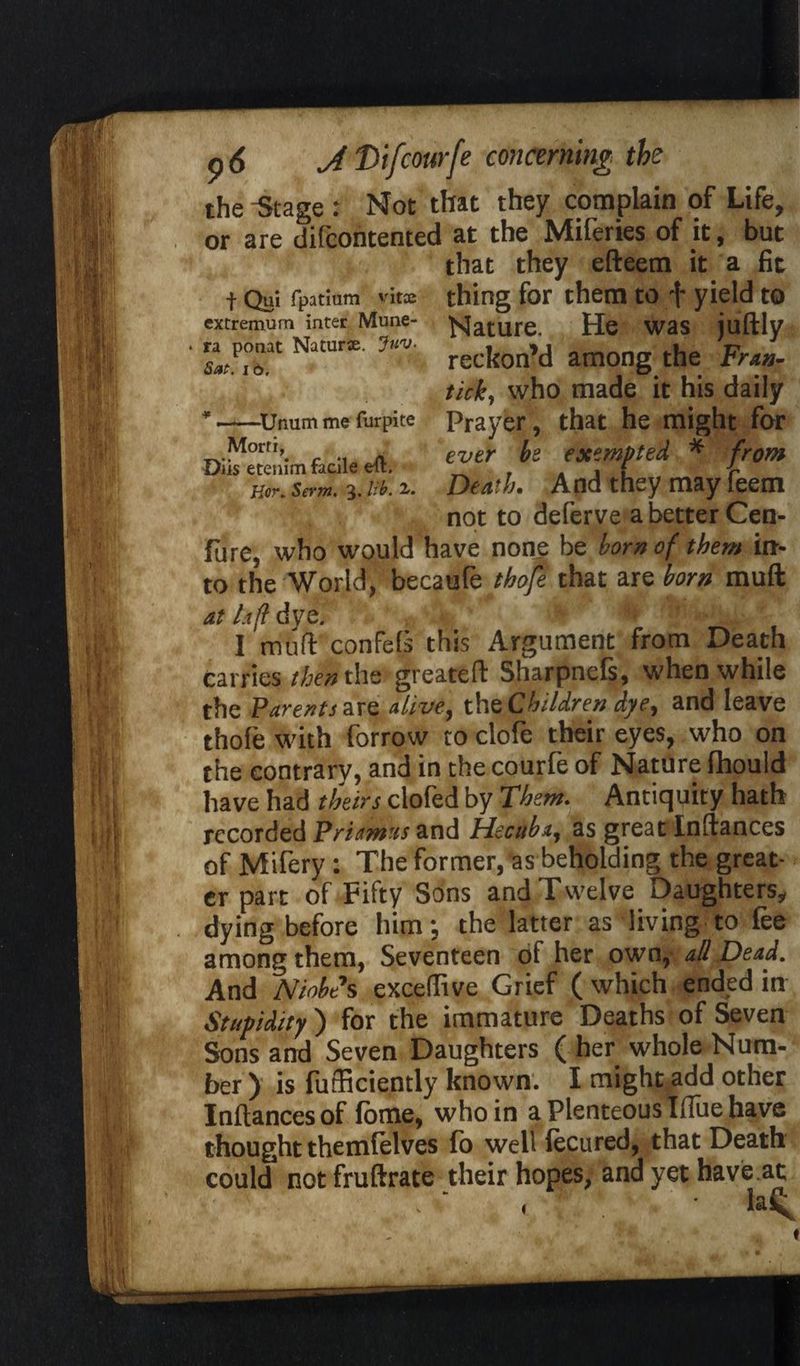 96 A Diſcourſe concerning the
the Stage: Not that they complain of Life,
or are diſcontented at the Miſeries of it, but
that they eſteem it a fit
thing for them to † yield to
Nature. He was juſtly
reckon'd among the Fran-
tick, who made it his daily
Prayer, that he might for
ever be exempted * from
Death. And they may ſeem
not to deſerve a better Cen-
† Qui ſpatium vitæ
extremum inter Mune-
ra ponat Naturæ. Juv.
Sat. 10.
* ——Unum me ſurpite
Morti,
Diis etenim facile eſt.
Hor. Serm. 3. lib. 2.
ſure, who would have none be born of them in-
to the World, becauſe thoſe that are born muſt
at laſt dye.
I muſt confeſs this Argument from Death
carries then the greateſt Sharpneſs, when while
the Parents are alive, the Children dye, and leave
thoſe with ſorrow to cloſe their eyes, who on
the contrary, and in the courſe of Nature ſhould
have had theirs cloſed by Them. Antiquity hath
recorded Priamus and Hecuba, as great Inſtances
of Miſery: The former, as beholding the great-
er part of Fifty Sons and Twelve Daughters,
dying before him; the latter as living to ſee
among them, Seventeen of her own, all Dead.
And Niobe's exceſſive Grief (which ended in
Stupidity) for the immature Deaths of Seven
Sons and Seven Daughters (her whole Num-
ber) is ſufficiently known. I might add other
Inſtances of ſome, who in a Plenteous Iſſue have
thought themſelves ſo well ſecured, that Death
could not fruſtrate their hopes, and yet have at
laſt